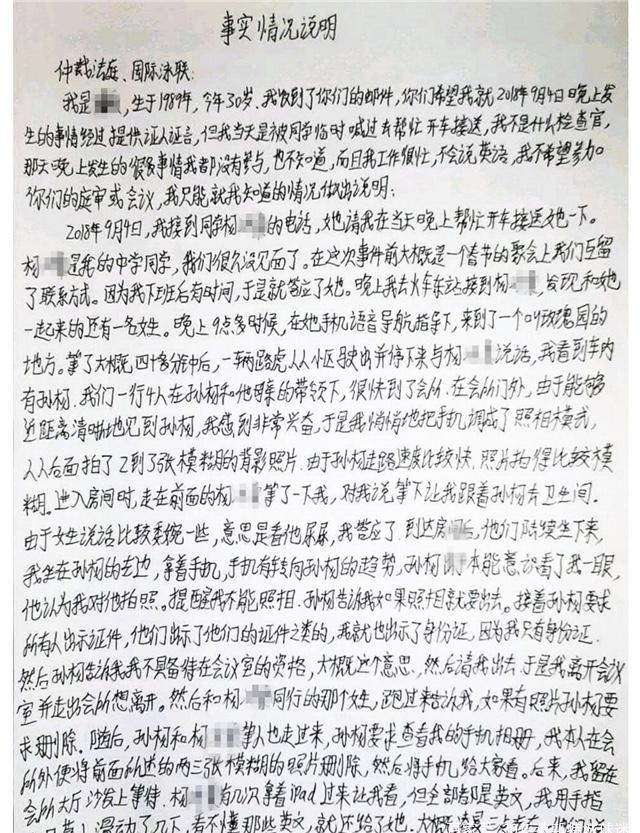 事实情况说明
仲裁法庭、国际泳联:
我是 ,生于1989年,今年30岁。我收到了你们的邮件,你们希望我就2018年9月4日晚上发
生的事情经过提供证人证言,但我当天是被同学临时喊过去帮忙开车接送,我不是什么检查官,
那天晚上发生的很多事情我都没有参与,也不知道,而且我工作很忙,不会说英语,我不希望参加
你们的庭审或会议,我只能就我知道的情况做出说明:
2018年9月4日,我接到同学杨 的电话,她请我在当天晚上帮忙开车接送她一下。
杨 是我的中学同学,我们很久没见面了。在这次事件前大概是一个春节的歌会上我们互留
了联系方式。因为我下班后有时间,于是就答应了她。晚上我去火车东站接到杨 ,发现和她
一起来的还有一名女性。晚上9点多时候,在她手机语音导航指导下,来到了一个叫玫瑰园的
地方。等了大概四十多分钟后,一辆路虎从小区驶出并停下来与杨 说话,我看到车内
有孙杨,我们一行4人在孙杨和他母亲的带领下,很快到了会所。在会所门外,由于能够
近距离清晰地见到孙杨,我感到非常兴奋,于是我悄悄地把手机调成了照相模式,
从后面拍了2到了3张模糊的背影照片。由于孙杨走路速度比较快,照片拍得比较模
糊。进入房间时,走在前面的杨 等了一下我,对我说等下让我跟着孙杨去卫生间。
由于女生说话比较委婉一些,意思是看他尿尿,我答应了。到达房间后,他们陆续坐下来,
我坐在孙杨的右边,拿着手机,手机有转向孙杨的趋势,孙杨 本能意识看了我一眼,
他认为我对他拍照。提醒我不能照相。孙杨告诉我如果照相就要出去。接着孙杨要求
所有人出示证件,他们出示了他们的证件之类的,我就也出示了身份证,因为我只有身份证.
然后孙杨告诉我我不具备待在会议室的资格,大概这个意思,然后请我出去,于是我离开会议
室并走出会所想离开。然后和杨 同行的那个女性,跑过来告诉我,如果有照片孙杨要
求删除。随后,孙杨和杨 等人也走过来,孙杨要求查看我的手机相册,我本人在会
所外便将前面所述的两三张模糊的照片删除,然后将手机给大家看。后来,我留在
会所大厅沙发上等待。杨 有几次拿着ipad过来让我看,但全部都是英文,我用手指
滑动了几下,看不懂那些英文,就还给了她。大概是三点左右